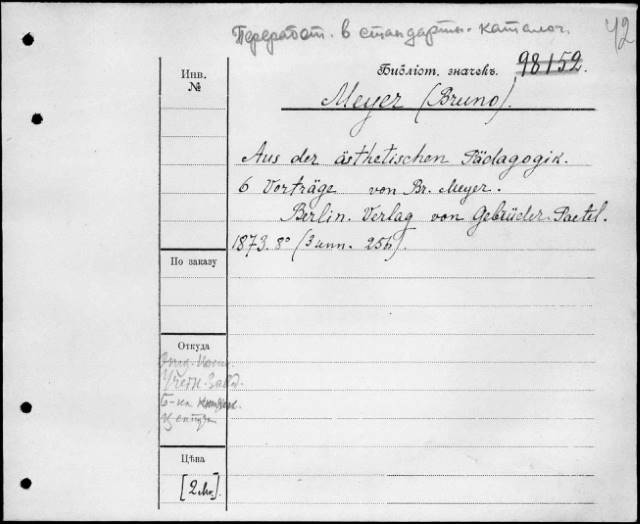 Переработ. в стандартн. каталог.
42
Инв.
№
Библіот. значекъ. 98152.
Meyer (Bruno).
Aus der ästhetischen Pädagogik.
6 Vorträge von Br. Meyer.
Berlin. Verlag von Gebrüder Paetel.
1873. 8° (3 нн. 256).
По заказу
Откуда
Учебн. Завед.
Цѣна
[2 Mк.]